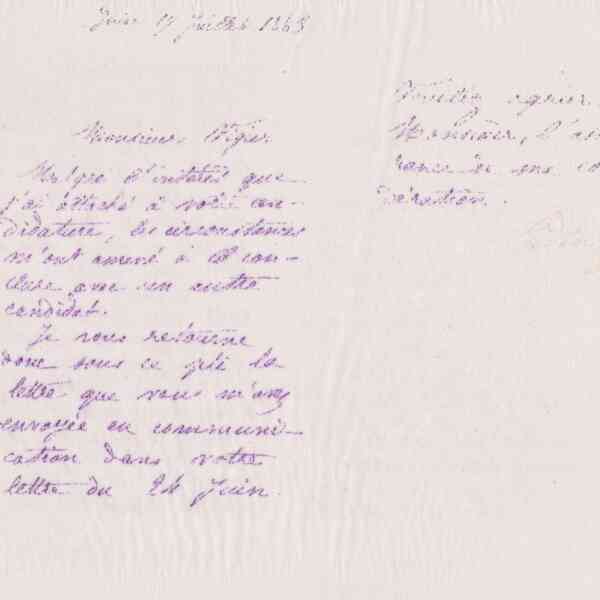 Juillet 1868
Monsieur Vigier
Malgré l'intérêt que
j'ai attaché à votre can-
didature, les circonstances
m'ont amené à con-
clure avec un autre
candidat.
Je vous retourne
donc sous ce pli la
lettre que vous m'avez
envoyée en communi-
cation dans votre
lettre du 24 Juin.
Veuillez agréer
Monsieur, l'as
rance de ma co
sidération.